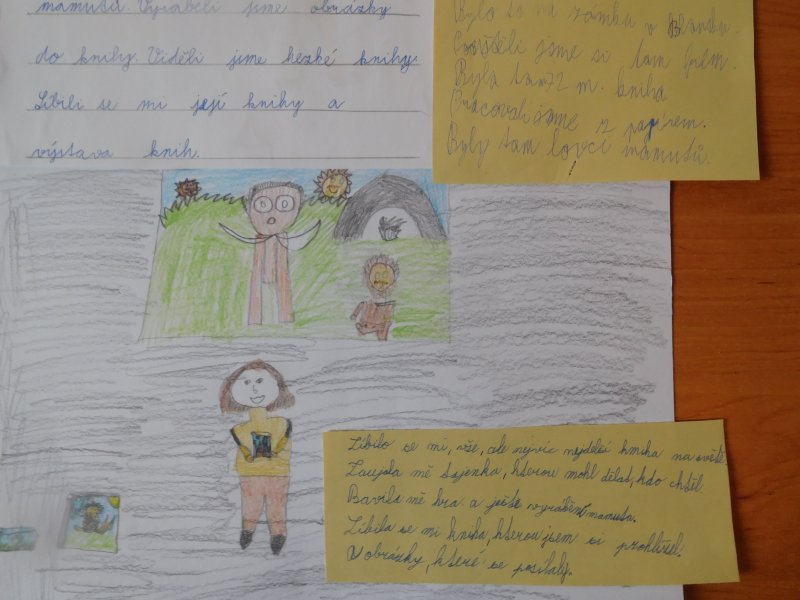 mamuta. Vyráběli jsme obrázky
do knihy. Viděli jsme hezké knihy.
Líbili se mi její knihy a
výstava knih.
Bylo to na zámku v Blansku.
jsme si tam
Byla tam 72 m. kniha
Pracovali jsme z papírem.
Byly tam lovci mamutů.
Líbilo se mi, vše, ale nejvíc nejdelší kniha na světě.
Zaujala mě tajenka, kterou mohl dělat, kdo chtěl.
Bavila mě hra a ještě vyrábění mamuta.
Líbila se mi kniha, kterou jsem si prohlížel.
obrázky, které se posílaly.